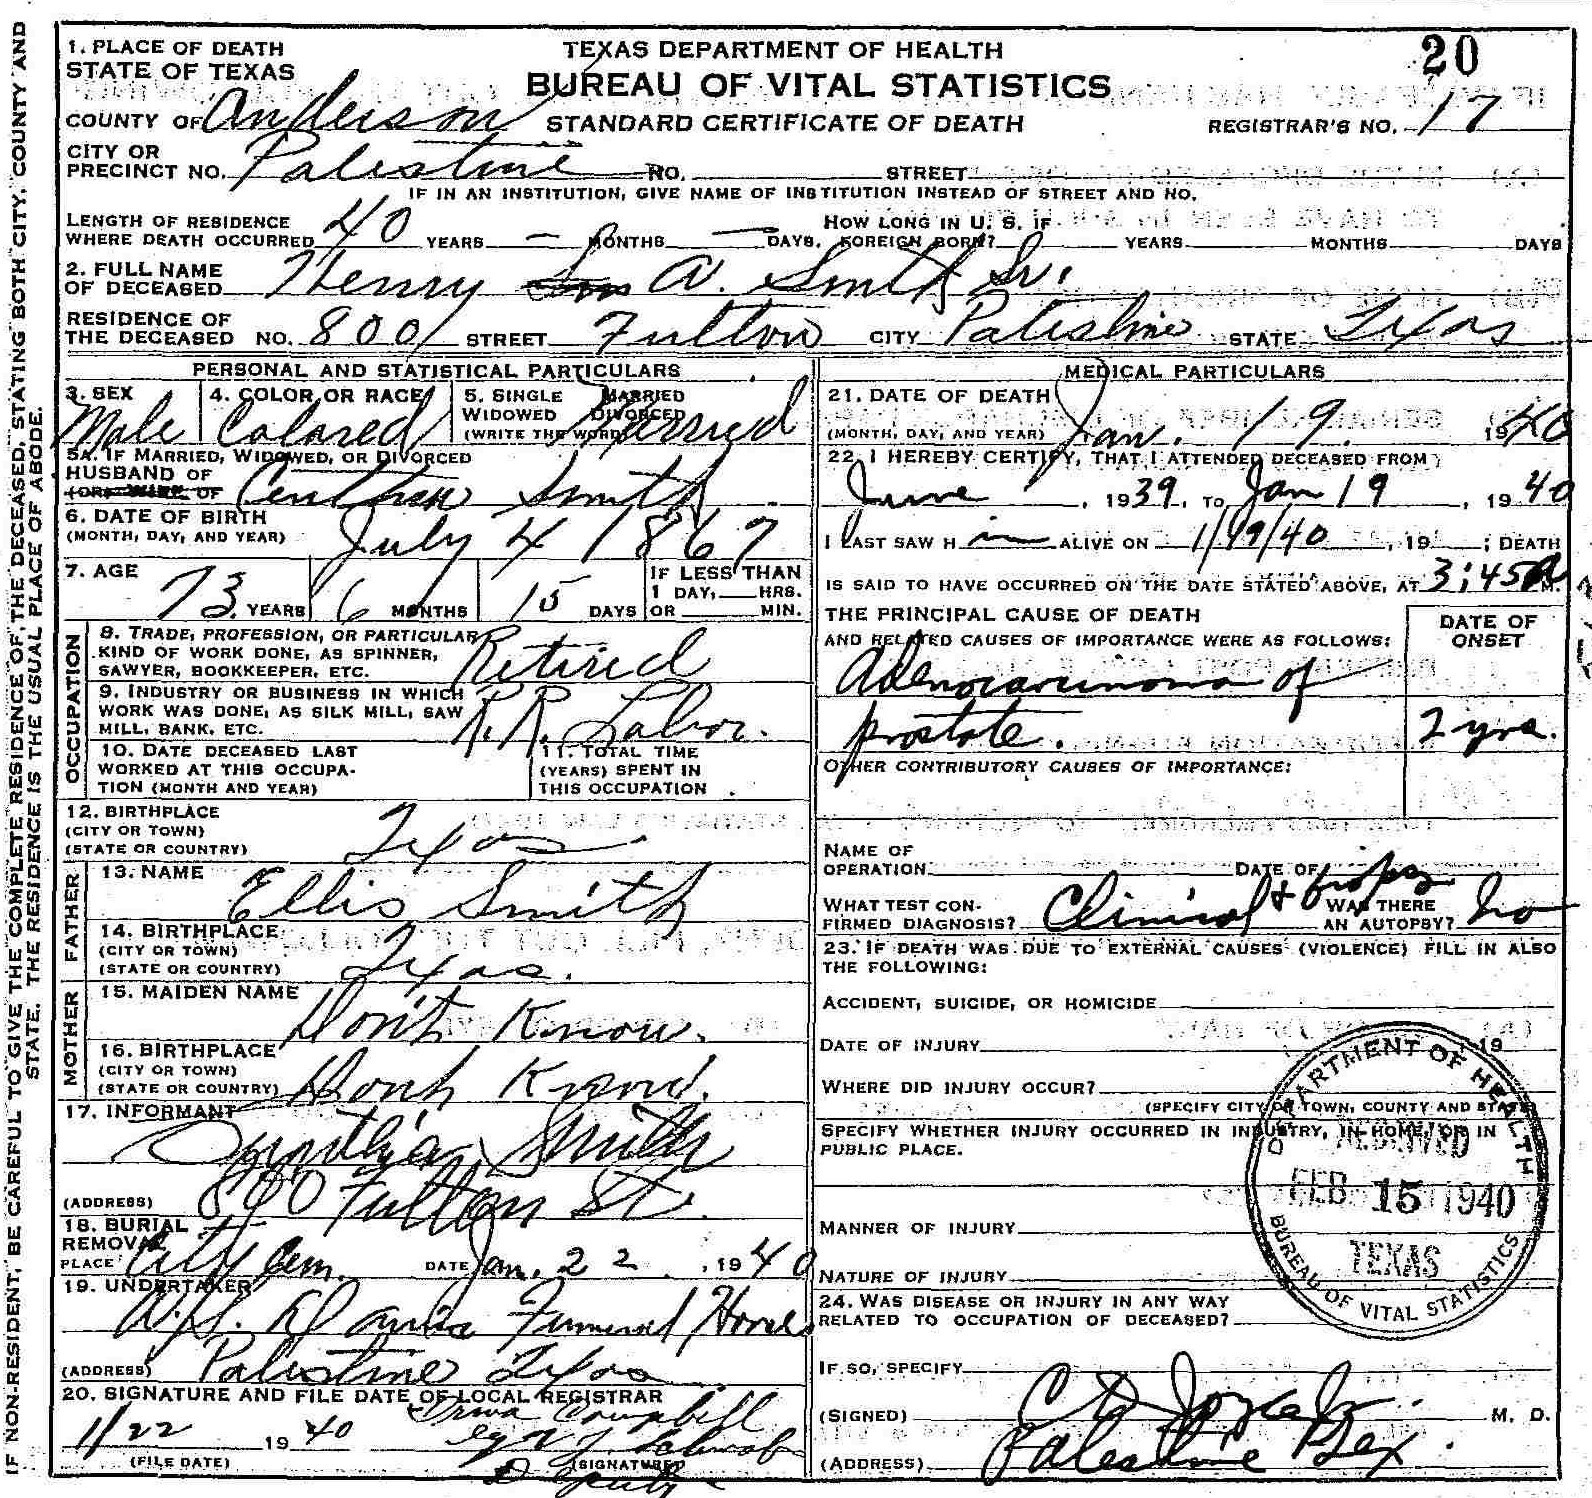 IF NON-RESIDENT, BE CAREFUL TO GIVE THE COMPLETE RESIDENCE OF THE DECEASED, STATING BOTH CITY, COUNTY AND
STATE. THE RESIDENCE IS THE USUAL PLACE OF ABODE.
1. PLACE OF DEATH
STATE OF TEXAS
TEXAS DEPARTMENT OF HEALTH
BUREAU OF VITAL STATISTICS
STANDARD CERTIFICATE OF DEATH
20
REGISTRAR'S NO. 17
COUNTY OF Anderson
CITY OR
PRECINCT NO. Palestine NO. STREET
IF IN AN INSTITUTION, GIVE NAME OF INSTITUTION INSTEAD OF STREET AND NO.
LENGTH OF RESIDENCE
WHERE DEATH OCCURRED 40 YEARS — MONTHS — DAYS. HOW LONG IN U. S. IF FOREIGN BORN? YEARS MONTHS DAYS
2. FULL NAME
OF DECEASED Henry A. Smith Sr.
RESIDENCE OF
THE DECEASED NO. 800 STREET Fulton CITY Palestine STATE Texas
PERSONAL AND STATISTICAL PARTICULARS
3. SEX
Male
4. COLOR OR RACE
Colored
5. SINGLE MARRIED
WIDOWED DIVORCED
(WRITE THE WORD) Married
5A. IF MARRIED, WIDOWED, OR DIVORCED
HUSBAND OF
(OR) WIFE OF Smith
6. DATE OF BIRTH
(MONTH, DAY, AND YEAR) July 4 1867
7. AGE
73 YEARS 6 MONTHS 15 DAYS
IF LESS THAN
1 DAY, HRS.
OR MIN.
OCCUPATION
8. TRADE, PROFESSION, OR PARTICULAR
KIND OF WORK DONE, AS SPINNER,
SAWYER, BOOKKEEPER, ETC. Retired
9. INDUSTRY OR BUSINESS IN WHICH
WORK WAS DONE, AS SILK MILL, SAW
MILL, BANK, ETC. R.R. Labor.
10. DATE DECEASED LAST
WORKED AT THIS OCCUPA-
TION (MONTH AND YEAR)
11. TOTAL TIME
(YEARS) SPENT IN
THIS OCCUPATION
12. BIRTHPLACE
(CITY OR TOWN)
(STATE OR COUNTRY) Texas
FATHER
13. NAME
Ellis Smith
14. BIRTHPLACE
(CITY OR TOWN)
(STATE OR COUNTRY) Texas.
MOTHER
15. MAIDEN NAME
Don't Know.
16. BIRTHPLACE
(CITY OR TOWN)
(STATE OR COUNTRY) Dont Know.
17. INFORMANT
Cynthia Smith
(ADDRESS) 800 Fulton St.
18. BURIAL
REMOVAL
PLACE City Cem. DATE Jan. 22, 1940
19. UNDERTAKER
Funeral Home
(ADDRESS) Palestine Texas
20. SIGNATURE AND FILE DATE OF LOCAL REGISTRAR
1/22 1940 Campbell
Schwab
(FILE DATE) (SIGNATURE)
Deputy
MEDICAL PARTICULARS
21. DATE OF DEATH
(MONTH, DAY, AND YEAR) Jan. 19. 1940
22. I HEREBY CERTIFY, THAT I ATTENDED DECEASED FROM
June, 1939, TO Jan 19, 1940
I LAST SAW H im ALIVE ON 1/19/40, 19 ; DEATH
IS SAID TO HAVE OCCURRED ON THE DATE STATED ABOVE, AT 3:45 A M.
THE PRINCIPAL CAUSE OF DEATH
AND RELATED CAUSES OF IMPORTANCE WERE AS FOLLOWS:
DATE OF
ONSET
Adenocarcinoma of
prostate. 2 yrs.
OTHER CONTRIBUTORY CAUSES OF IMPORTANCE:
NAME OF
OPERATION DATE OF
WHAT TEST CON-
FIRMED DIAGNOSIS? Clinical & biopsy WAS THERE
AN AUTOPSY? No
23. IF DEATH WAS DUE TO EXTERNAL CAUSES (VIOLENCE) FILL IN ALSO
THE FOLLOWING:
ACCIDENT, SUICIDE, OR HOMICIDE
DATE OF INJURY 19
WHERE DID INJURY OCCUR?
(SPECIFY CITY OR TOWN, COUNTY AND STATE)
SPECIFY WHETHER INJURY OCCURRED IN INDUSTRY, IN HOME, OR IN
PUBLIC PLACE.
MANNER OF INJURY
NATURE OF INJURY
24. WAS DISEASE OR INJURY IN ANY WAY
RELATED TO OCCUPATION OF DECEASED?
IF SO, SPECIFY
(SIGNED) M. D.
(ADDRESS) Palestine Tex.
DEPARTMENT OF HEALTH
RECEIVED
FEB 15 1940
TEXAS
BUREAU OF VITAL STATISTICS